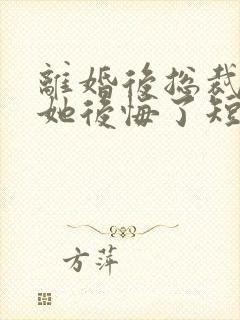 離婚後総裁
她後悔了短
方萍